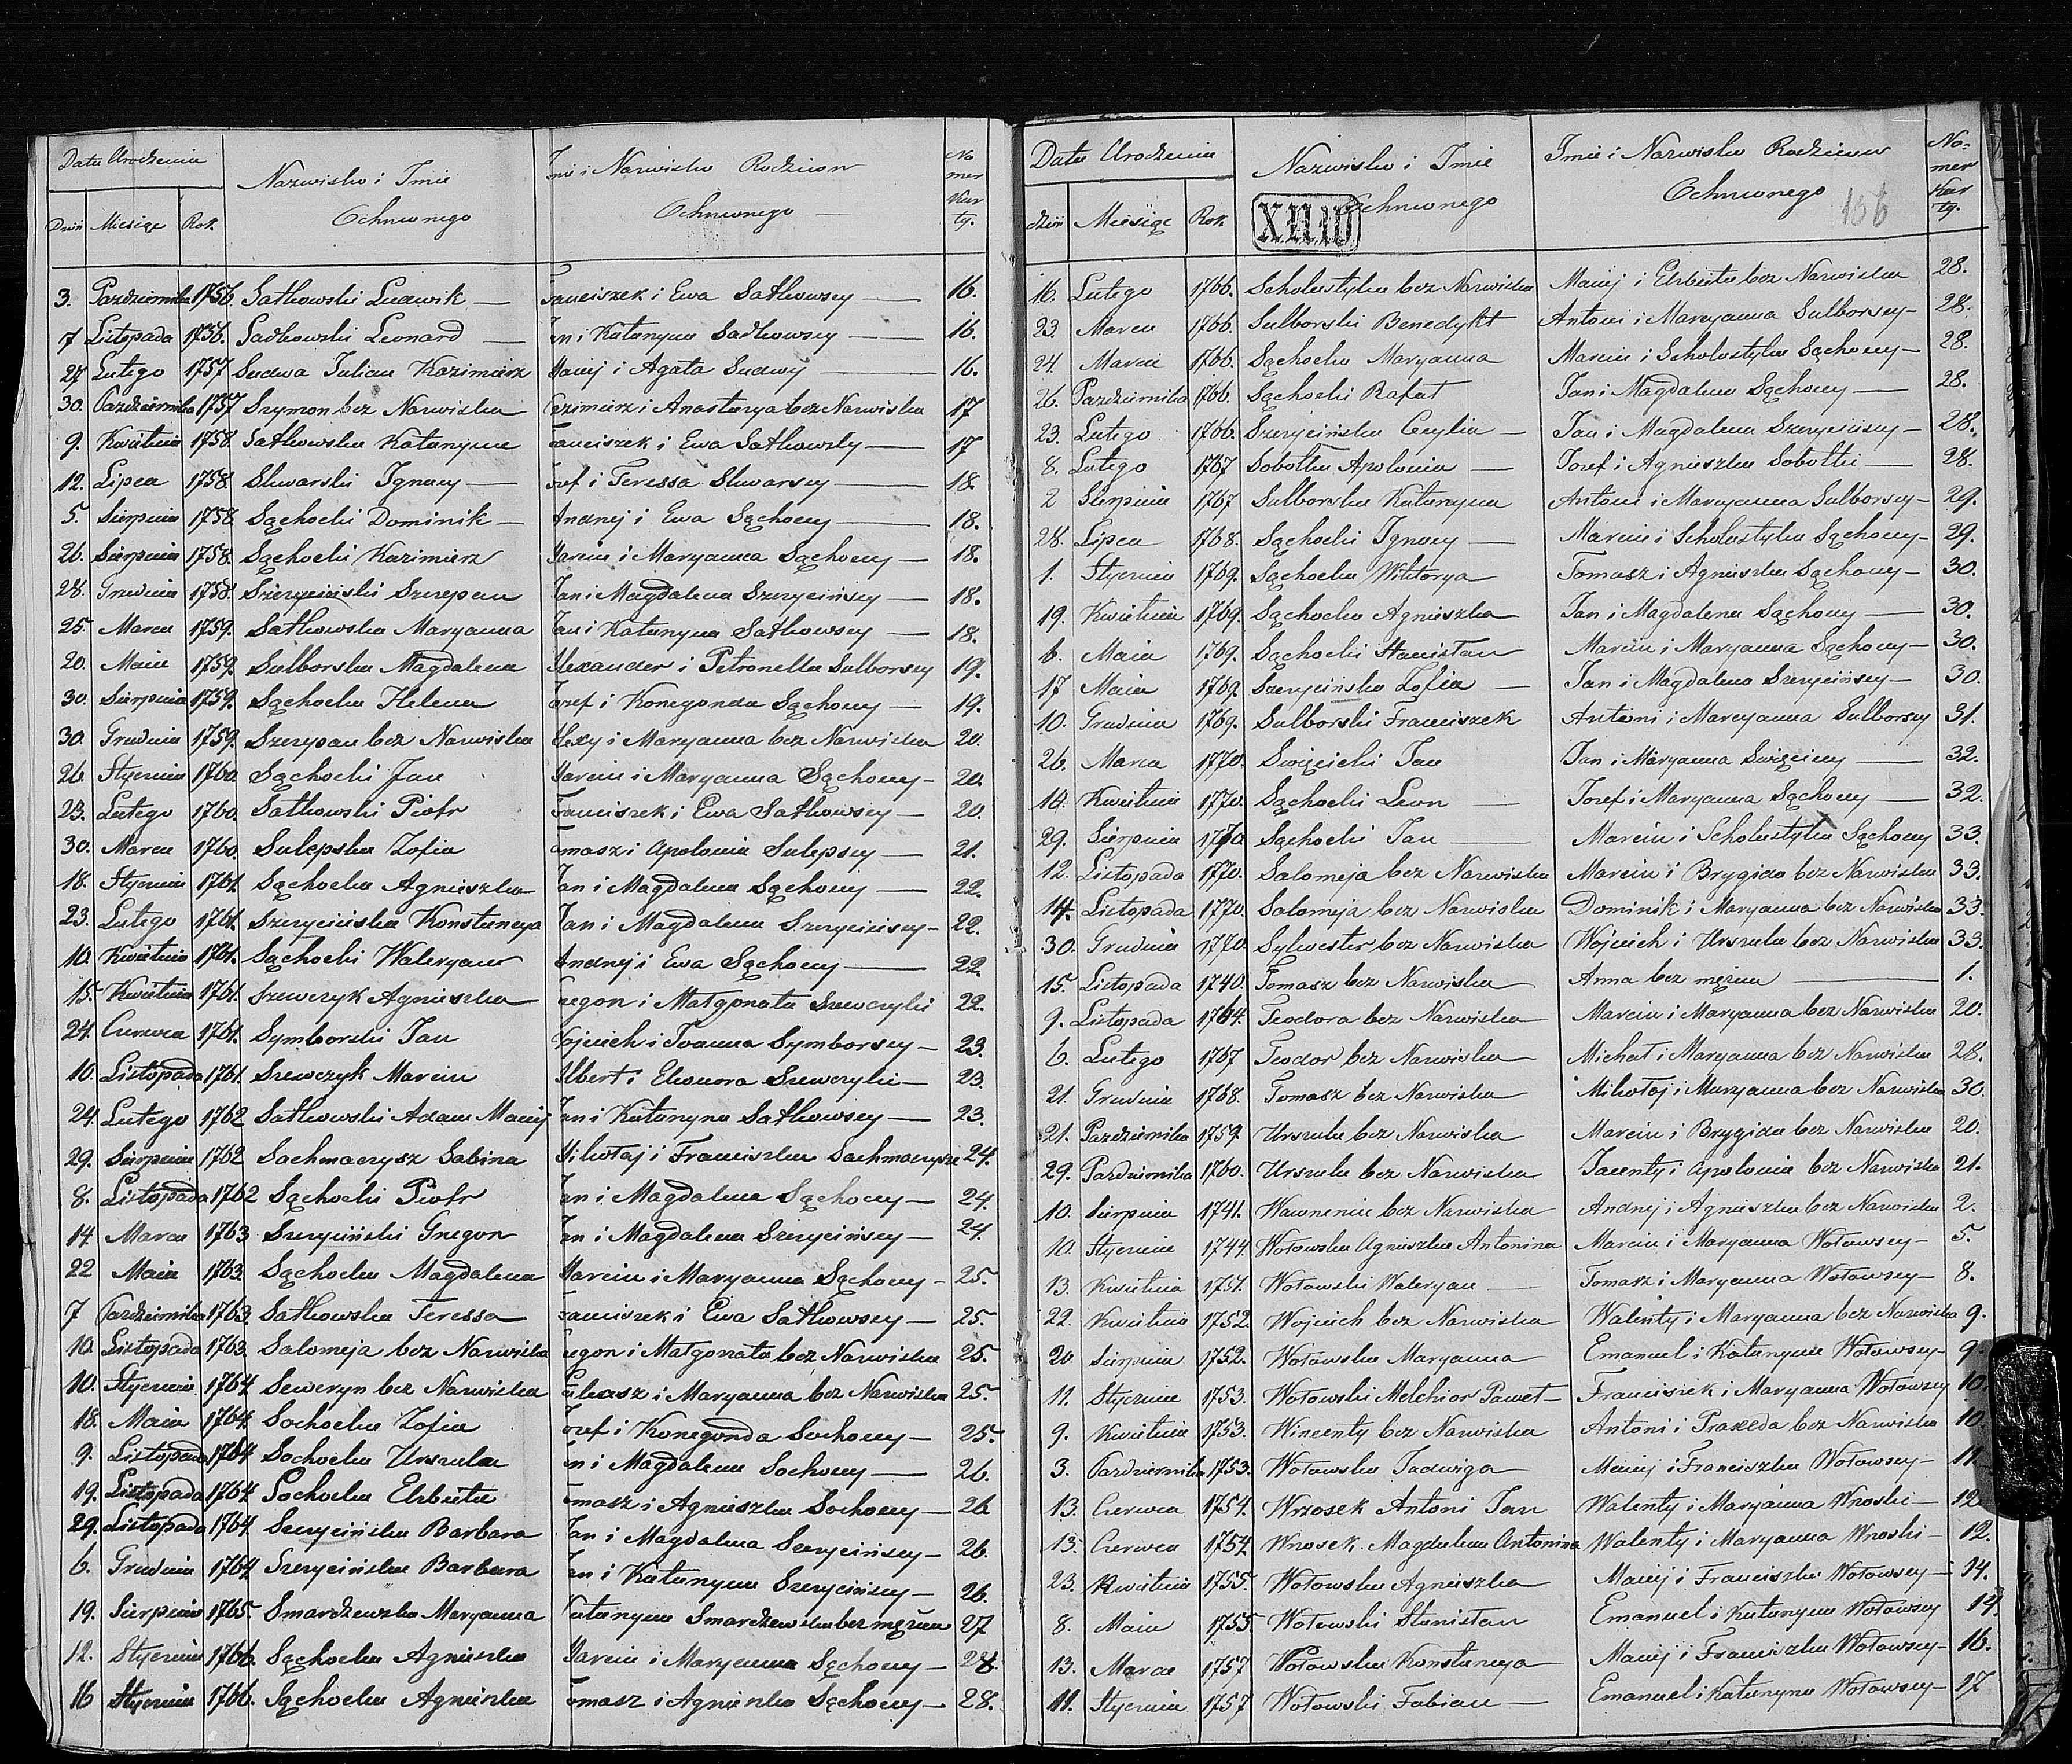 Data Urodzenia
Nazwisko i Imie
Ochrzconego
Imie i Nazwisko Rodzicow
Ochrzconego
No
mer
Kar
ty.
Dzień Miesiąc Rok
3. Pazdziernika 1756. Satkowski Ludwik — Franciszek i Ewa Satkowscy — 16.
7 Listopada 1756. Sadkowski Leonard — Jan i Katarzyna Sadkowscy — 16.
27 Lutego 1757 Sudwa Julian Kazimierz Maciej i Agata Sudwy — 16.
30. Pazdziernika 1757 Szymon bez Nazwiska Kazimierz i Anastazya bez Nazwiska 17
9. Kwietnia 1758. Satkowska Katarzyna Franciszek i Ewa Satkowscy — 17
12. Lipca 1758. Skwarski Ignacy — Jozef i Teressa Skwarscy — 18.
5. Sierpnia 1758. Sąchocki Dominik — Andrzej i Ewa Sąchoccy — 18.
26. Sierpnia 1758. Sąchocki Kazimierz Marcin i Maryanna Sąchoccy — 18.
28. Grudnia 1758. Szczyciński Szczepan Jan i Magdalena Szczycińscy — 18.
25. Marca 1759. Satkowska Maryanna Jan i Katarzyna Satkowscy — 18.
20. Maia 1759. Sulborska Magdalena Alexander i Petronella Sulborscy 19.
30. Sierpnia 1759. Sąchocka Helena Jozef i Konegonda Sąchoccy — 19.
30. Grudnia 1759. Szczepan bez Nazwiska Alexy i Maryanna bez Nazwiska 20.
26. Stycznia 1760. Sąchocki Jan Marcin i Maryanna Sąchoccy — 20.
23. Lutego 1760. Satkowski Piotr Franciszek i Ewa Satkowscy — 20.
30. Marca 1760. Sulepska Zofia Tomasz i Apolonia Sulepscy — 21.
18. Stycznia 1761. Sąchocka Agnieszka Jan i Magdalena Sąchoccy — 22.
23. Lutego 1761. Szczycińska Konstancya Jan i Magdalena Szczycińscy — 22.
10. Kwietnia 1761. Sąchocki Waleryan Andrzej i Ewa Sąchoccy — 22
15. Kwietnia 1761. Szewczyk Agnieszka Gregorz i Małgorzata Szewczyki 22.
24. Czerwca 1761. Symborski Jan Wojciech i Joanna Symborscy — 23.
10. Listopada 1761. Szewczyk Marcin Albert i Eleonora Szewczyki — 23.
24. Lutego 1762 Satkowski Adam Maciej Jan i Katarzyna Satkowscy — 23.
29. Sierpnia 1762 Sachmaczysz Sabina Mikołaj i Franciszka Sachmaczysze 24.
8. Listopada 1762 Sąchocki Piotr Jan i Magdalena Sąchoccy — 24.
14. Marca 1763 Szczyciński Gregorz Jan i Magdalena Szczycińscy — 24.
22 Maia 1763. Sąchocka Magdalena Marcin i Maryanna Sąchoccy — 25.
7 Pazdziernika 1763. Satkowska Teressa Franciszek i Ewa Satkowscy — 25.
10. Listopada 1763. Salomeja bez Nazwiska Gregorz i Małgorzata bez Nazwiska 25.
10. Stycznia 1764. Seweryn bez Nazwiska Łukasz i Maryanna bez Nazwiska 25.
18. Maia 1764. Sochocka Zofia Jozef i Konegonda Sochoccy — 25.
9. Listopada 1764 Sochocka Urszula Jan i Magdalena Sochoccy — 26.
19. Listopada 1764 Sochocka Elzbieta Tomasz i Agnieszka Sochoccy — 26
29. Listopada 1764. Szczycińska Barbara Jan i Magdalena Szczycińscy — 26.
6. Grudnia 1764. Szczycińska Barbara Jan i Katarzyna Szczycińscy — 26.
19. Sierpnia 1765. Smardzewska Maryanna Katarzyna Smardzewska bez męża 27
12. Stycznia 1766. Sąchocka Agnieszka Marcin i Maryanna Sąchoccy — 28.
16 Stycznia 1766. Sąchocka Agnieszka Tomasz i Agnieszka Sąchoccy — 28.
Data Urodzenia
Nazwisko i Imie
Ochrzconego
Imie i Nazwisko Rodzicow
Ochrzconego
156
No-
mer
Kar
ty.
dzień Miesiąc Rok
XII 10
16. Lutego 1766. Scholastyka bez Nazwiska Maciej i Elzbieta bez Nazwiska 28.
23. Marca 1766. Sulborski Benedykt Antoni i Maryanna Sulborscy — 28.
24. Marca 1766. Sąchocka Maryanna Marcin i Scholastyka Sąchoccy — 28.
26. Pazdziernika 1766. Sąchocki Rafał Jan i Magdalena Sąchoccy — 28.
23. Lutego 1766. Szczycińska Cecylia — Jan i Magdalena Szczycińscy — 28.
8. Lutego 1767 Sobotka Apolonia — Jozef i Agnieszka Sobotki — 28.
2 Sierpnia 1767 Sulborska Katarzyna Antoni i Maryanna Sulborscy — 29.
28. Lipca 1768. Sąchocki Ignacy — Marcin i Scholastyka Sąchoccy — 29.
1. Stycznia 1769. Sąchocka Wiktorya Tomasz i Agnieszka Sąchoccy — 30.
19. Kwietnia 1769. Sąchocka Agnieszka Jan i Magdalena Sąchoccy — 30.
6. Maia 1769. Sąchocki Stanisław Marcin i Maryanna Sąchoccy — 30.
17 Maia 1769. Szczycińska Zofia — Jan i Magdalena Szczycińscy — 30.
10. Grudnia 1769. Sulborski Franciszek Antoni i Maryanna Sulborscy 31.
26. Marca 1770. Swięcicki Jan Jan i Maryanna Swięciccy — 32.
14. Kwietnia 1770. Sąchocki Leon — Jozef i Maryanna Sąchoccy — 32.
29. Sierpnia 1770. Sąchocki Jan — Marcin i Scholastyka Sąchoccy 33.
12. Listopada 1770. Salomeja bez Nazwiska Marcin i Brygida bez Nazwiska 33.
14. Listopada 1770. Salomeja bez Nazwiska Dominik i Maryanna bez Nazwiska 33.
30. Grudnia 1770. Sylwester bez Nazwiska Wojciech i Urszula bez Nazwiska 33.
15. Listopada 1740. Tomasz bez Nazwiska Anna bez męża — 1.
9. Listopada 1764. Teodora bez Nazwiska Marcin i Maryanna bez Nazwiska 20.
6. Lutego 1767 Teodor bez Nazwiska Michał i Maryanna bez Nazwiska 28.
21. Grudnia 1768. Tomasz bez Nazwiska Mikołaj i Maryanna bez Nazwiska 30.
21. Pazdziernika 1759. Urszula bez Nazwiska Marcin i Brygida bez Nazwiska 20.
29. Pazdziernika 1760. Urszula bez Nazwiska Jacenty i Apolonia bez Nazwiska 21.
10. Sierpnia 1741. Wawrzeniec bez Nazwiska Andrzej i Agnieszka bez Nazwiska 2.
10. Stycznia 1744. Wołowska Agnieszka Antonina Marcin i Maryanna Wołowscy — 5.
13. Kwietnia 1751. Wołowski Waleryan — Tomasz i Maryanna Wołowscy — 8.
22. Kwietnia 1752. Wojciech bez Nazwiska Walenty i Maryanna bez Nazwiska 9.
20 Sierpnia 1752. Wołowska Maryanna Emanuel i Katarzyna Wołowscy — 9.
11. Stycznia 1753. Wołowski Melchior Paweł — Franciszek i Maryanna Wołowscy 10.
9. Kwietnia 1753. Wincenty bez Nazwiska Antoni i Praxeda bez Nazwiska 10.
3. Pazdziernika 1753. Wołowska Jadwiga Maciej i Franciszka Wołowscy — 11.
13. Czerwca 1754. Wrzosek Antoni Jan Walenty i Maryanna Wrzoski — 12.
13. Czerwca 1754. Wrzosek Magdalena Antonina Walenty i Maryanna Wrzoski — 12.
23. Kwietnia 1755. Wołowska Agnieszka Maciej i Franciszka Wołowscy — 14.
8. Maia 1755 Wołowski Stanisław Emanuel i Katarzyna Wołowscy 14.
13. Marca 1757 Wołowska Konstancya Maciej i Franciszka Wołowscy — 16.
11. Stycznia 1757 Wołowski Fabian — Emanuel i Katarzyna Wołowscy — 17